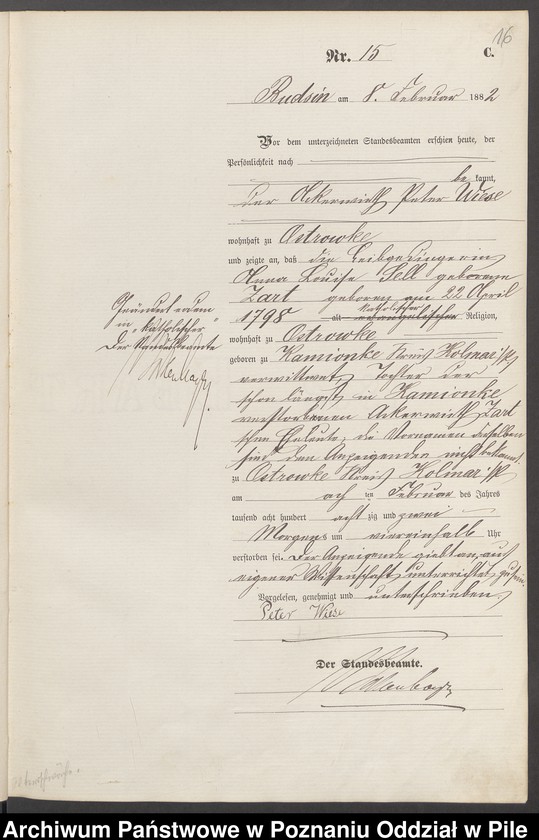 16
Nr. 15 C.
Budsin am 8. Februar 1882
Vor dem unterzeichneten Standesbeamten erschien heute, der
Persönlichkeit nach
be kannt,
der Ackerwirth Peter Wiese
wohnhaft zu Ostrowke
und zeigte an, daß die Leibgedingerin
Anna Louise Sell geborene
Zart geboren am 22 April
katholischer
1798 alt evangelischer Religion,
wohnhaft zu Ostrowke
geboren zu Kamionke Kreis Kolmar i/P,
verwittwet, Tochter der
schon längst in Kamionke
verstorbenen Ackerwirth Zart
schen Eheleute, die Vornamen derselben
sind dem Anzeigenden nicht bekannt.
zu Ostrowke Kreis Kolmar i/P
am acht ten Februar des Jahres
tausend acht hundert acht zig und zwei
Morgens um viereinhalb Uhr
verstorben sei. Der Anzeigende giebt an, aus
eigener Wissenschaft unterrichtet zu sein.
Vorgelesen, genehmigt und unterschrieben.
Peter Wiese
Der Standesbeamte.
Geändert
in "katholischer"
Der Standesbeamte
Archiwum Państwowe w Poznaniu Oddział w Pile